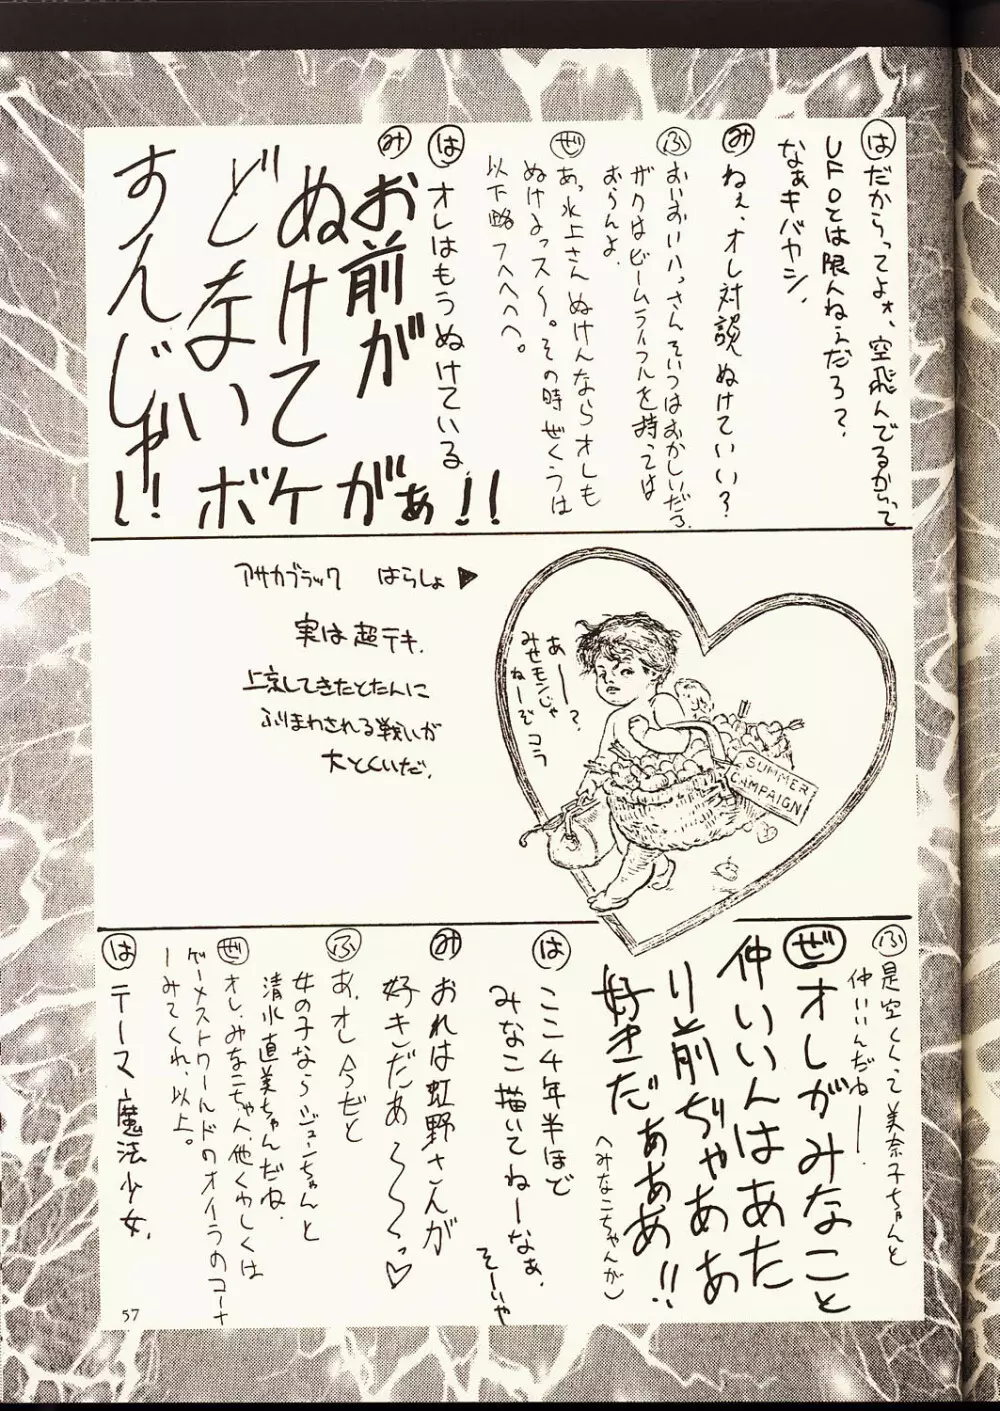 は だからってよォ、空飛んでるからって
UFOとは限んねぇだろ?、
なぁキバヤシ、
み ねぇ、オレ対談ぬけていい?
ふ おいおいハっさんそいつはおかしいだろ、
ザクはビームライフルを持っては
おらんよ、
ぜ あっ、水上さんぬけんならオレも
ぬけるっス〜。その時ぜくうは
以下略フヘヘヘヘ。
は オレはもうぬけている、
み お前が
ぬけて
どないい
すんじゃ
い! ボケがぁ!!
アサカブラック はらしょ▶
実は超テキ、
上京してきたとたんに
ふりまわされる戦いが
大とくいだ、
あーー?、
みせモンじゃ
ねーぞコラ
SUMMER
CAMPAIGN
ふ 是空くんって美奈子ちゃんと
仲いいんだねーー、
ぜ オレがみなこと
仲いいんはあた
り前ぢゃああ
好きだぁぁぁ!!
(みなこちゃんが)
は ここ4年半ほど
みなこ描いてねーなぁ、
そーいや
み おれは虹野さんが
好きだあ〜〜〜っ♡
ふ あ、オレ今だと
女の子ならジューンちゃんと
清水直美ちゃんだね、
ぜ オレ、みなこちゃん、他くわしくは
ゲーメストワールドのオイラのコーナ
ーみてくれ、以上。
は テーマ魔法少女、
57